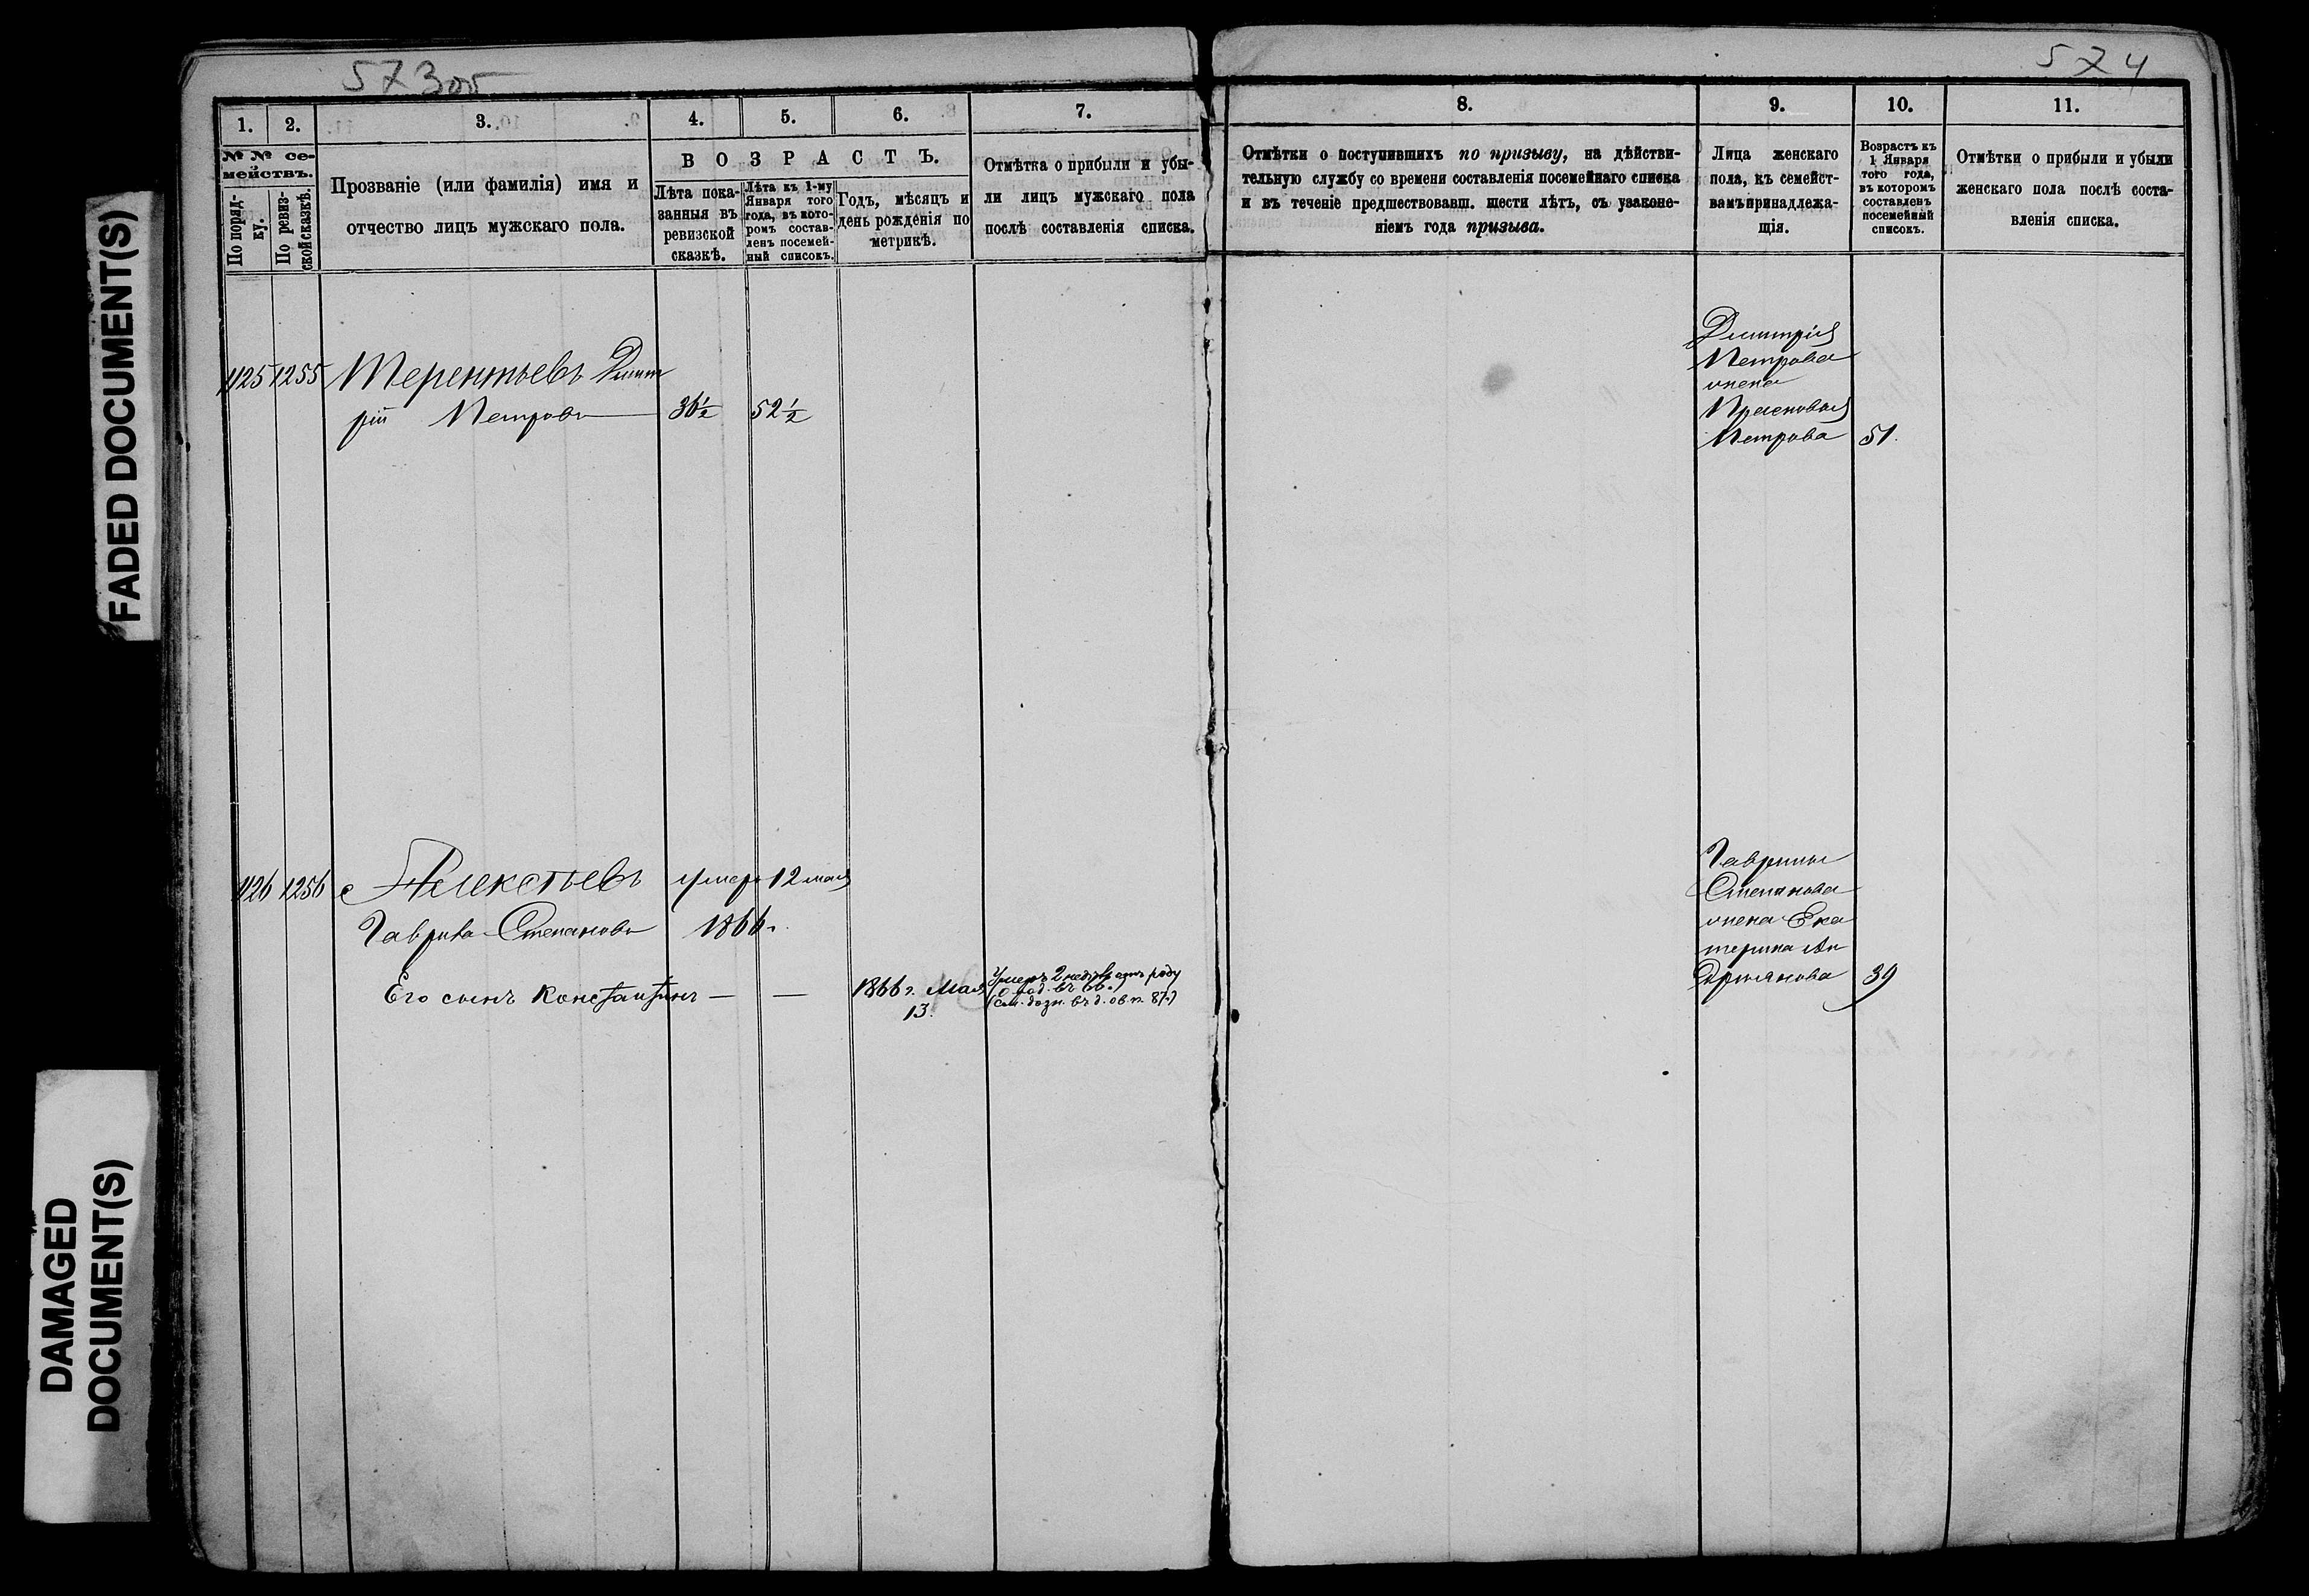 573об
574
FADED DOCUMENT(S)
DAMAGED
DOCUMENT(S)
1.
2.
3.
4.
5.
6.
7.
8.
9.
10.
11.
№ № се-
мействъ.
По поряд-
ку.
По ревиз-
ской сказкѣ.
Прозваніе (или фамилія) имя и
отчество лицъ мужскаго пола.
ВОЗРАСТЪ.
Лѣта пока-
занныя въ
ревизской
сказкѣ.
Лѣта къ 1-му
Января того
года, въ кото-
ромъ состав-
ленъ посемей-
ный списокъ.
Годъ, мѣсяцъ и
день рожденія по
метрикѣ.
Отмѣтка о прибыли и убы-
ли лицъ мужскаго пола
послѣ составленія списка.
Отмѣтки о поступившихъ по призыву, на дѣйстви-
тельную службу со времени составленія посемейнаго списка
и въ теченіе предшествовавш. шести лѣтъ, съ узаконе-
ніемъ года призыва.
Лица женскаго
пола, къ семейст-
вамъ принадлежа-
щія.
Возрастъ къ
1 Января
того года,
въ которомъ
составленъ
посемейный
списокъ.
Отмѣтки о прибыли и убыли
женскаго пола послѣ соста-
вленія списка.
1125 1255 Терентьевъ Димит
рій Петровъ 36½ 52½
Димитрія
Петрова
жена
Прасковья
Петрова 51.
1126 1256 Алексѣевъ умеръ 12 мая
Гаврила Степановъ 1866 г.
Его сынъ Константинъ — — 1866 г. Мая
13.
Умеръ 2 недѣль отъ роду
въ 66.)
(см. дозн. въ д. об. п. 87.)
Гаврилы
Степанова
жена Ека
терина Ан
дрьянова 39